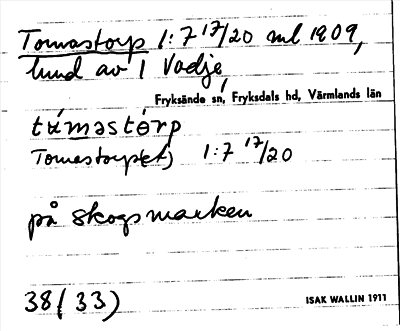 Tomastorp 1:7 17/20 ml 1909,
lund av 1 Vadje,
Fryksände sn, Fryksdals hd, Värmlands län
tómastòrp
Tomastorp(et) 1:7 17/20
på skogsmarken
38(33)
ISAK WALLIN 1911